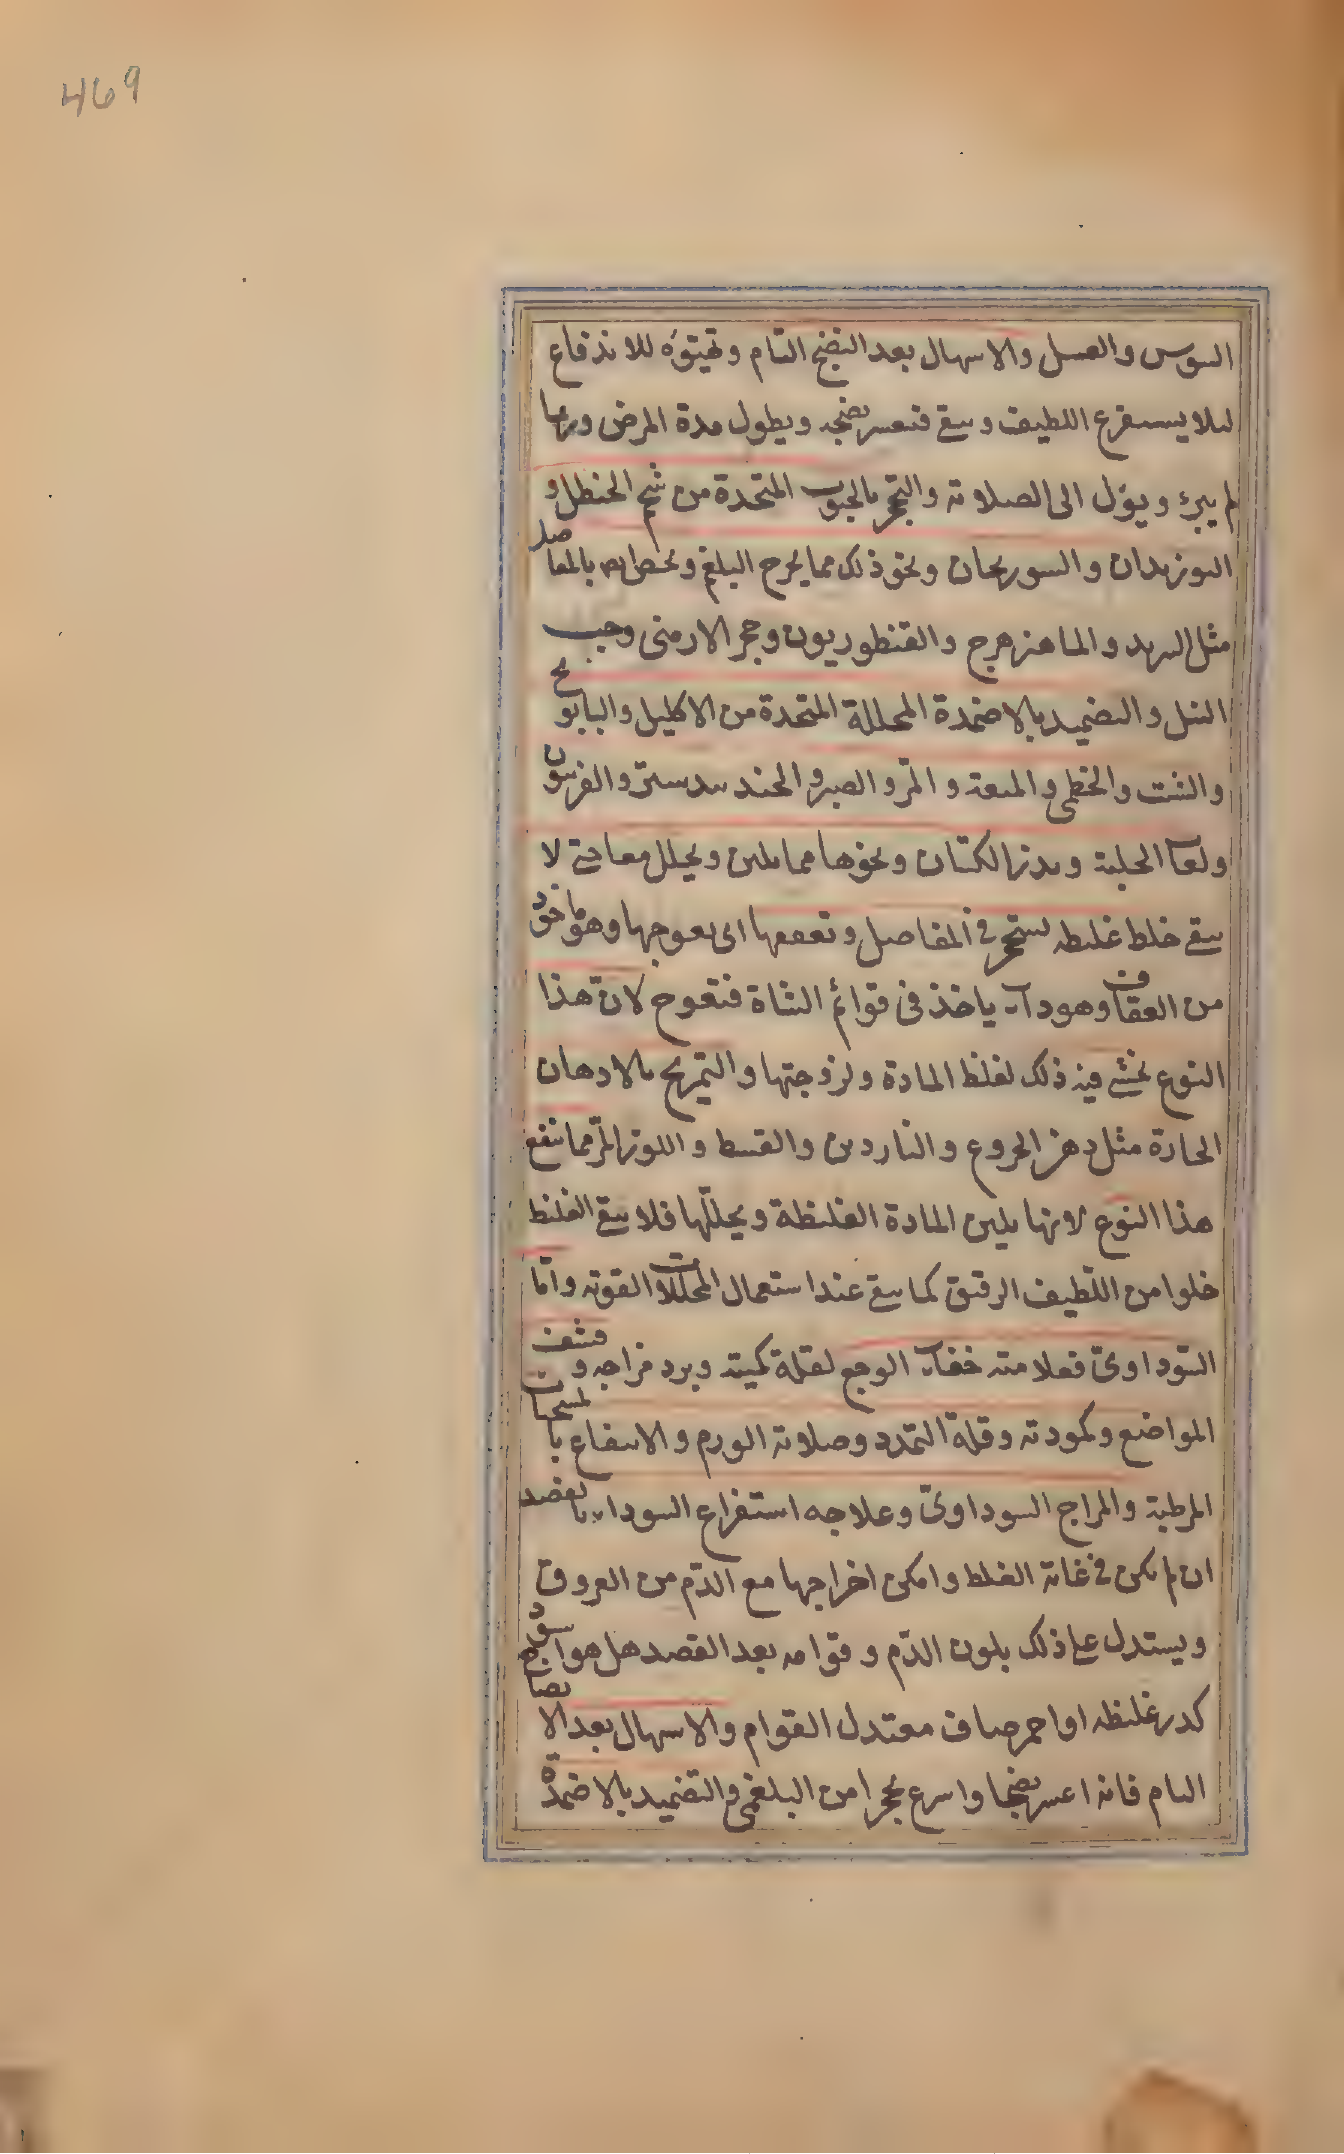 469
السوس والعسل والاسهال بعد النضج التام وتهيؤه للاندفاع
لئلا يستفرغ اللطيف ويبقى فتعسر نضجه ويطول مدة المرض وربما
لم يبرئ ويؤل الى الصلابة والتحجر بالحبوب المتخذة من شحم الحنظل و
البوزيدان والسورنجان ونحو ذلك مما يخرج البلغم بالمفاصل
مثل التربد والماهيزهرج والقنطوريون وحجر الارمنى وحب
النيل والتضميد بالاضمدة المحللة المتخذة من الاكليل والبابونج
والشبت والخطمى والميعة والمر والصبر والجندبيدستر والفربيون
ولعاب الحلبة وبذر الكتان ونحوها مما يلين ويحلل معا حتى لا
يبقى خلط غليظ يستحجر فى المفاصل وتعقفها اى يعوجها وهو ماخوذ
من العقاف وهو داء ياخذ فى قوائم الشاة فتعوج لان هذا
النوع يخشى فيه ذلك لغلظ المادة ولزوجتها والتمريخ بالادهان
الحارة مثل دهن الخروع والناردين والقسط واللوز المر مما ينفع
هذا النوع لانها يلين المادة الغليظة ويحللها فلا يبقى الغليظ
خلوا من اللطيف الرقيق كما يبقى عند استعمال المحللات القوية واما
السوداوى فعلامته خفاء الوجع لقلة كميته وبرد مزاجه و
المواضع وكمودته وقلة التمدد وصلابة الورم والانتفاع بالمسخنات
المرطبة والمزاج السوداوى وعلاجه استفراغ السوداء بالفصد
ان لم يكن فى غاية الغلظ وامكن اخراجها مع الدم من العروق
ويستدل على ذلك بلون الدم وقوامه بعد الفصد هل هو اسود
كدر غليظ او احمر صاف معتدل القوام والاسهال بعد الانضاج
التام فانه اعسر نضجا واسرع تحجرا من البلغمى والتضميد بالاضمدة